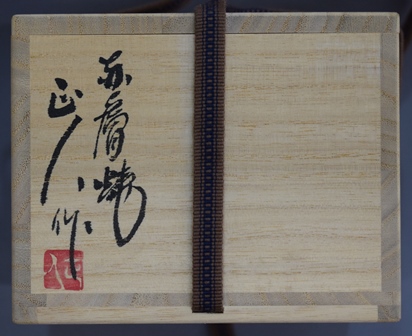 赤膚焼
正人作